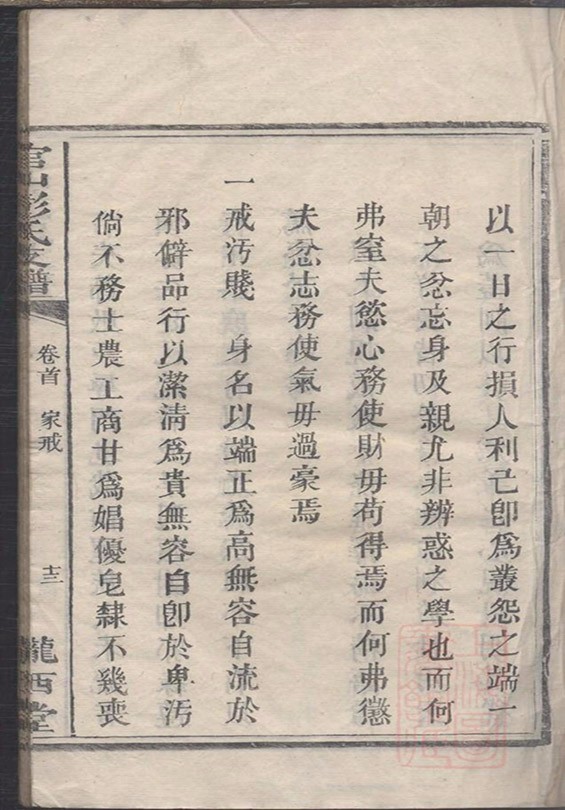 以一日之行損人利己卽爲叢怨之端一
朝之忿忘身及親尤非辨惑之學也而何
弗窒夫慾心務使財毋苟得焉而何弗懲
夫忿志務使氣毋過豪焉
一戒汚賤　身名以端正爲高無容自流於
邪僻品行以潔清爲貴無容自卽於卑汚
倘不務士農工商甘爲娼優皂隸不幾喪
彭氏支譜
卷首　家戒
十三
隴西堂